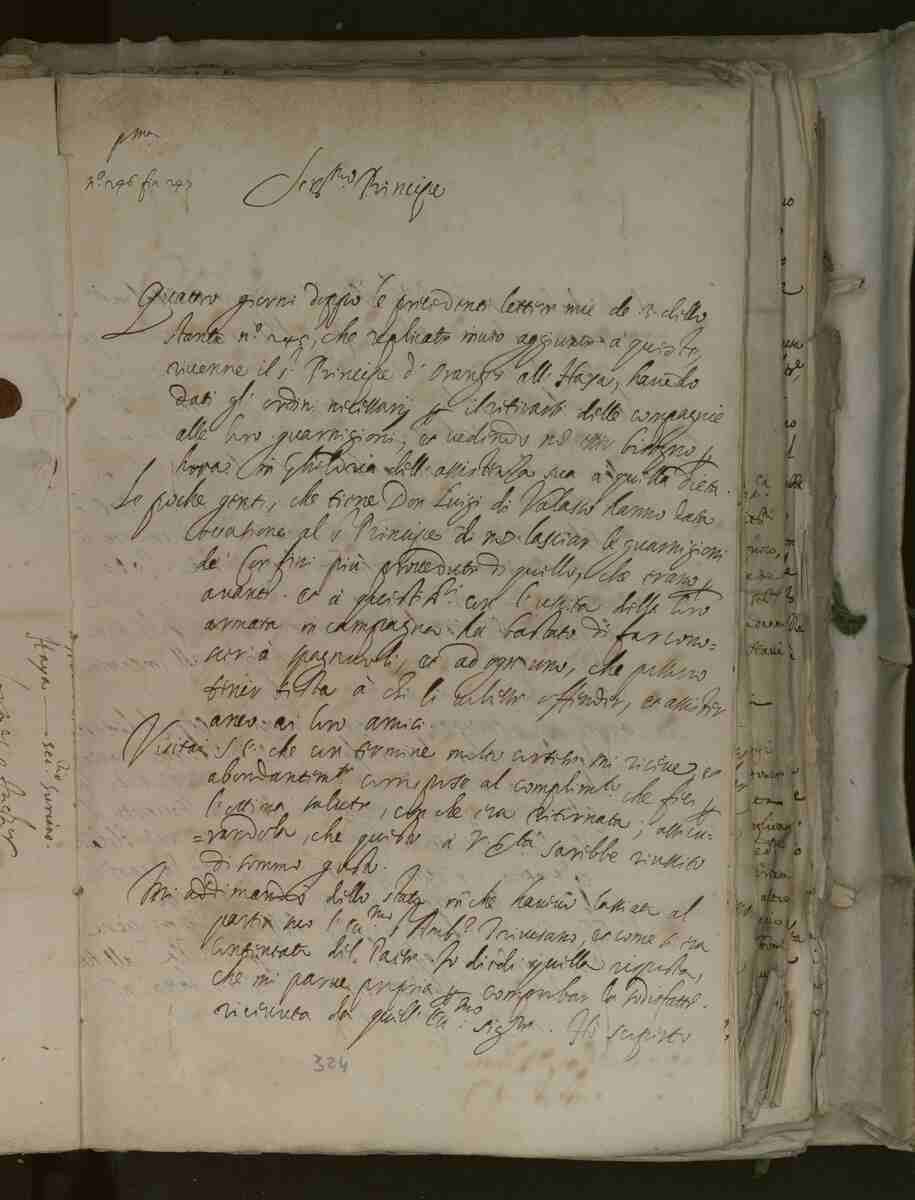 p.ma
n.o 246 fin 247
Ser.mo Principe
Quattro giorni doppo le precedenti lettere mie de 3 dello
stante n.o 245, che replicate invio aggiunte à queste,
rivenne il s.r Principe d'Oranges all'Haya, havendo
dati gl'ordini necessarij per il ritirarsi delle compagnie
alle loro guarnigioni; et vedendo non esser bisogno per
hora in Gheldria dell'assistenza sua à quella Dieta.
Le poche genti, che tiene Don Luigi di Valasco hanno data
occatione al s.r Principe di non lasciar le guarnigioni
de' confini più provedute di quello, che erano per
avanti. et à questi SS.ri con l'uscita della loro
armata in campagna hà bastato di far cono=
scer à Spagnuoli, et ad ogn'uno, che possono
tener testa à chi li volesse offender, et assister
anco ai loro amici.
Visitai S. E. che con termine molto cortese mi riceve, et
abondantem.te corrispose al complimento che feci per
l'ottima salute, con che era ritornata; assicu=
=randola, che questo à V.ra Ser.tà sarebbe riuscito
di sommo gusto.
Mi addimandò dello stato, in che havevo lasciato al
partir mio l'Ecc.mo s.r Amb.r Trivisano, et come era
contentata del. Io diedi quella risposta,
che mi parve propria per comprobar la sodisfatt.e
ricevuta da quell'Ecc.mo sig.re. Hò scoperto
324
Haya